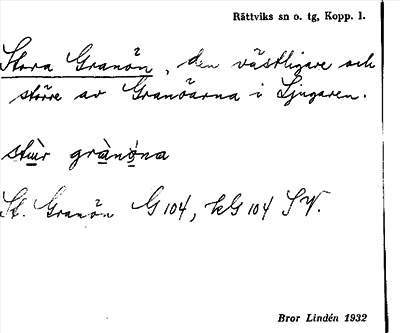 Rättviks sn o. tg, Kopp. l.
Stora Granön, den västligare och
större av Granöarna i Ljugaren.
stùr grànöna
St. Granön G 104, kG 104 SV.
Bror Lindén 1932